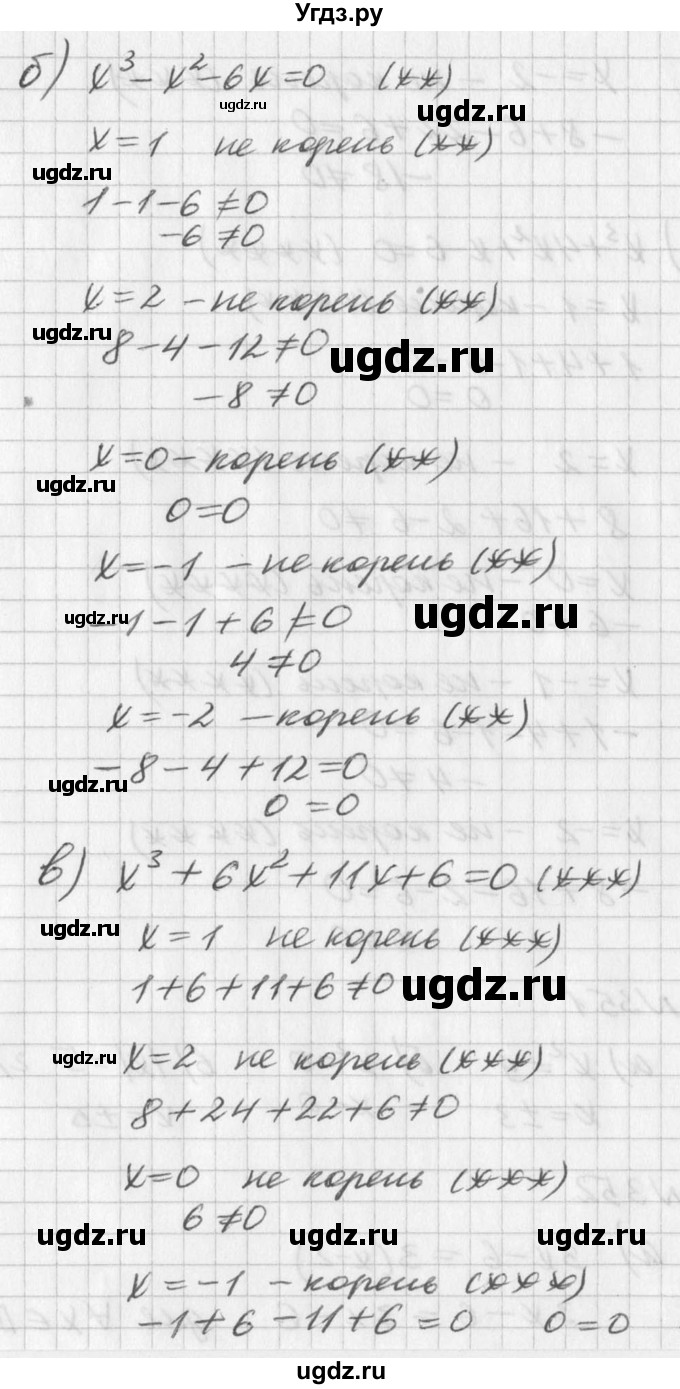 Угдз.ру
б) x³ - x² - 6x = 0 (**)
ugdz.ru
x = 1 не корень (**)
ugdz.ru
1 - 1 - 6 ≠ 0
-6 ≠ 0
x = 2 - не корень (**)
ugdz.ru
8 - 4 - 12 ≠ 0
ugdz.ru
-8 ≠ 0
x = 0 - корень (**)
ugdz.ru
0 = 0
x = -1 - не корень (**)
ugdz.ru
-1 - 1 + 6 ≠ 0
ugdz.ru
4 ≠ 0
x = -2 - корень (**)
-8 - 4 + 12 = 0
ugdz.ru
0 = 0
в) x³ + 6x² + 11x + 6 = 0 (***)
ugdz.ru
x = 1 не корень (***)
1 + 6 + 11 + 6 ≠ 0
ugdz.ru
ugdz.ru
x = 2 не корень (***)
8 + 24 + 22 + 6 ≠ 0
x = 0 не корень (***)
6 ≠ 0
ugdz.ru ugdz.ru ugdz.ru
x = -1 - корень (***)
-1 + 6 - 11 + 6 = 0 0 = 0
ugdz.ru